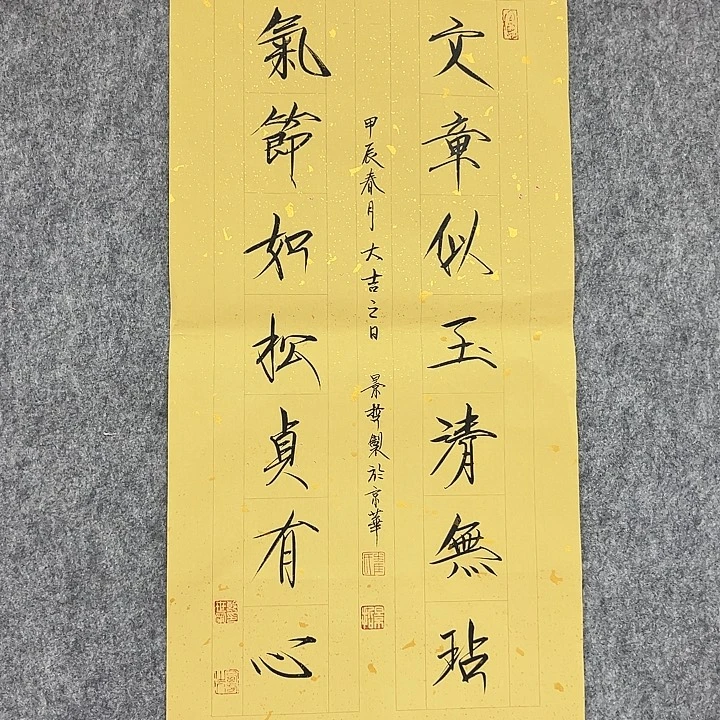 文章似玉清無玷
甲辰春月大吉之日 景哲製於京華
氣節如松貞有心